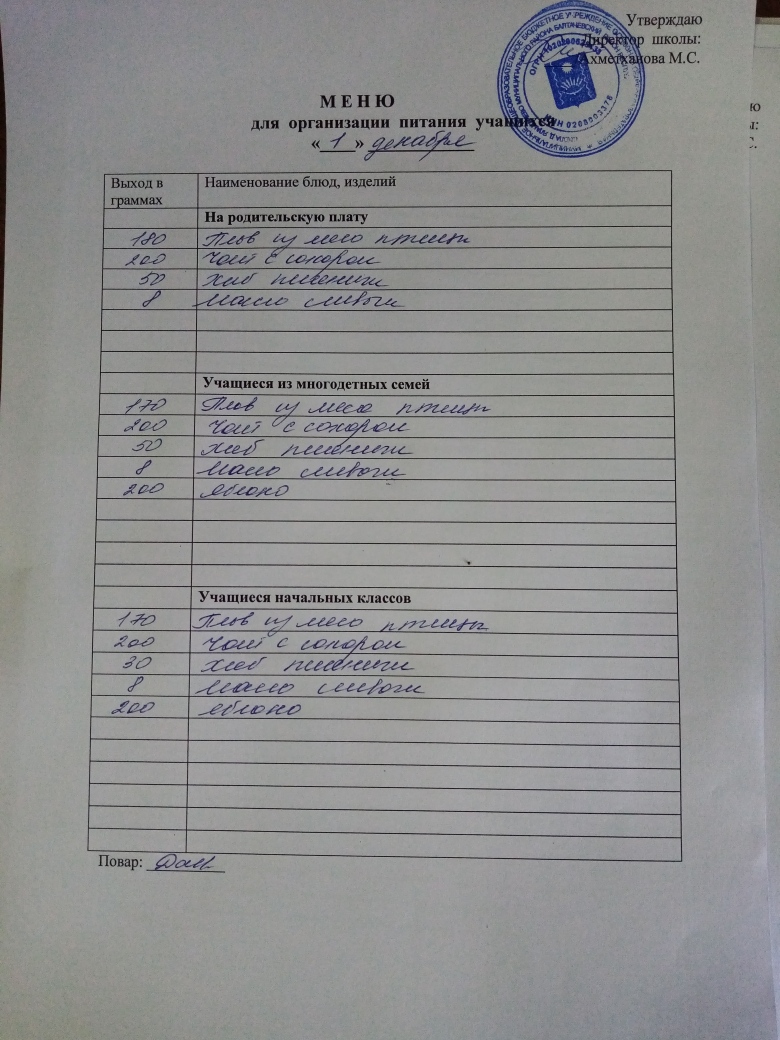 Утверждаю
Директор школы:
Ахметханова М.С.
М Е Н Ю
для организации питания учащихся
« 1 » декабря
Выход в граммах Наименование блюд, изделий
На родительскую плату
180 Плов из мяса птицы
200 Чай с сахаром
50 Хлеб пшеничн
8 Масло сливочн
Учащиеся из многодетных семей
170 Плов из мяса птицы
200 Чай с сахаром
50 Хлеб пшеничн
8 Масло сливочн
200 яблоко
Учащиеся начальных классов
170 Плов из мяса птицы
200 Чай с сахаром
30 хлеб пшеничн
8 Масло сливочн
200 яблоко
Повар: